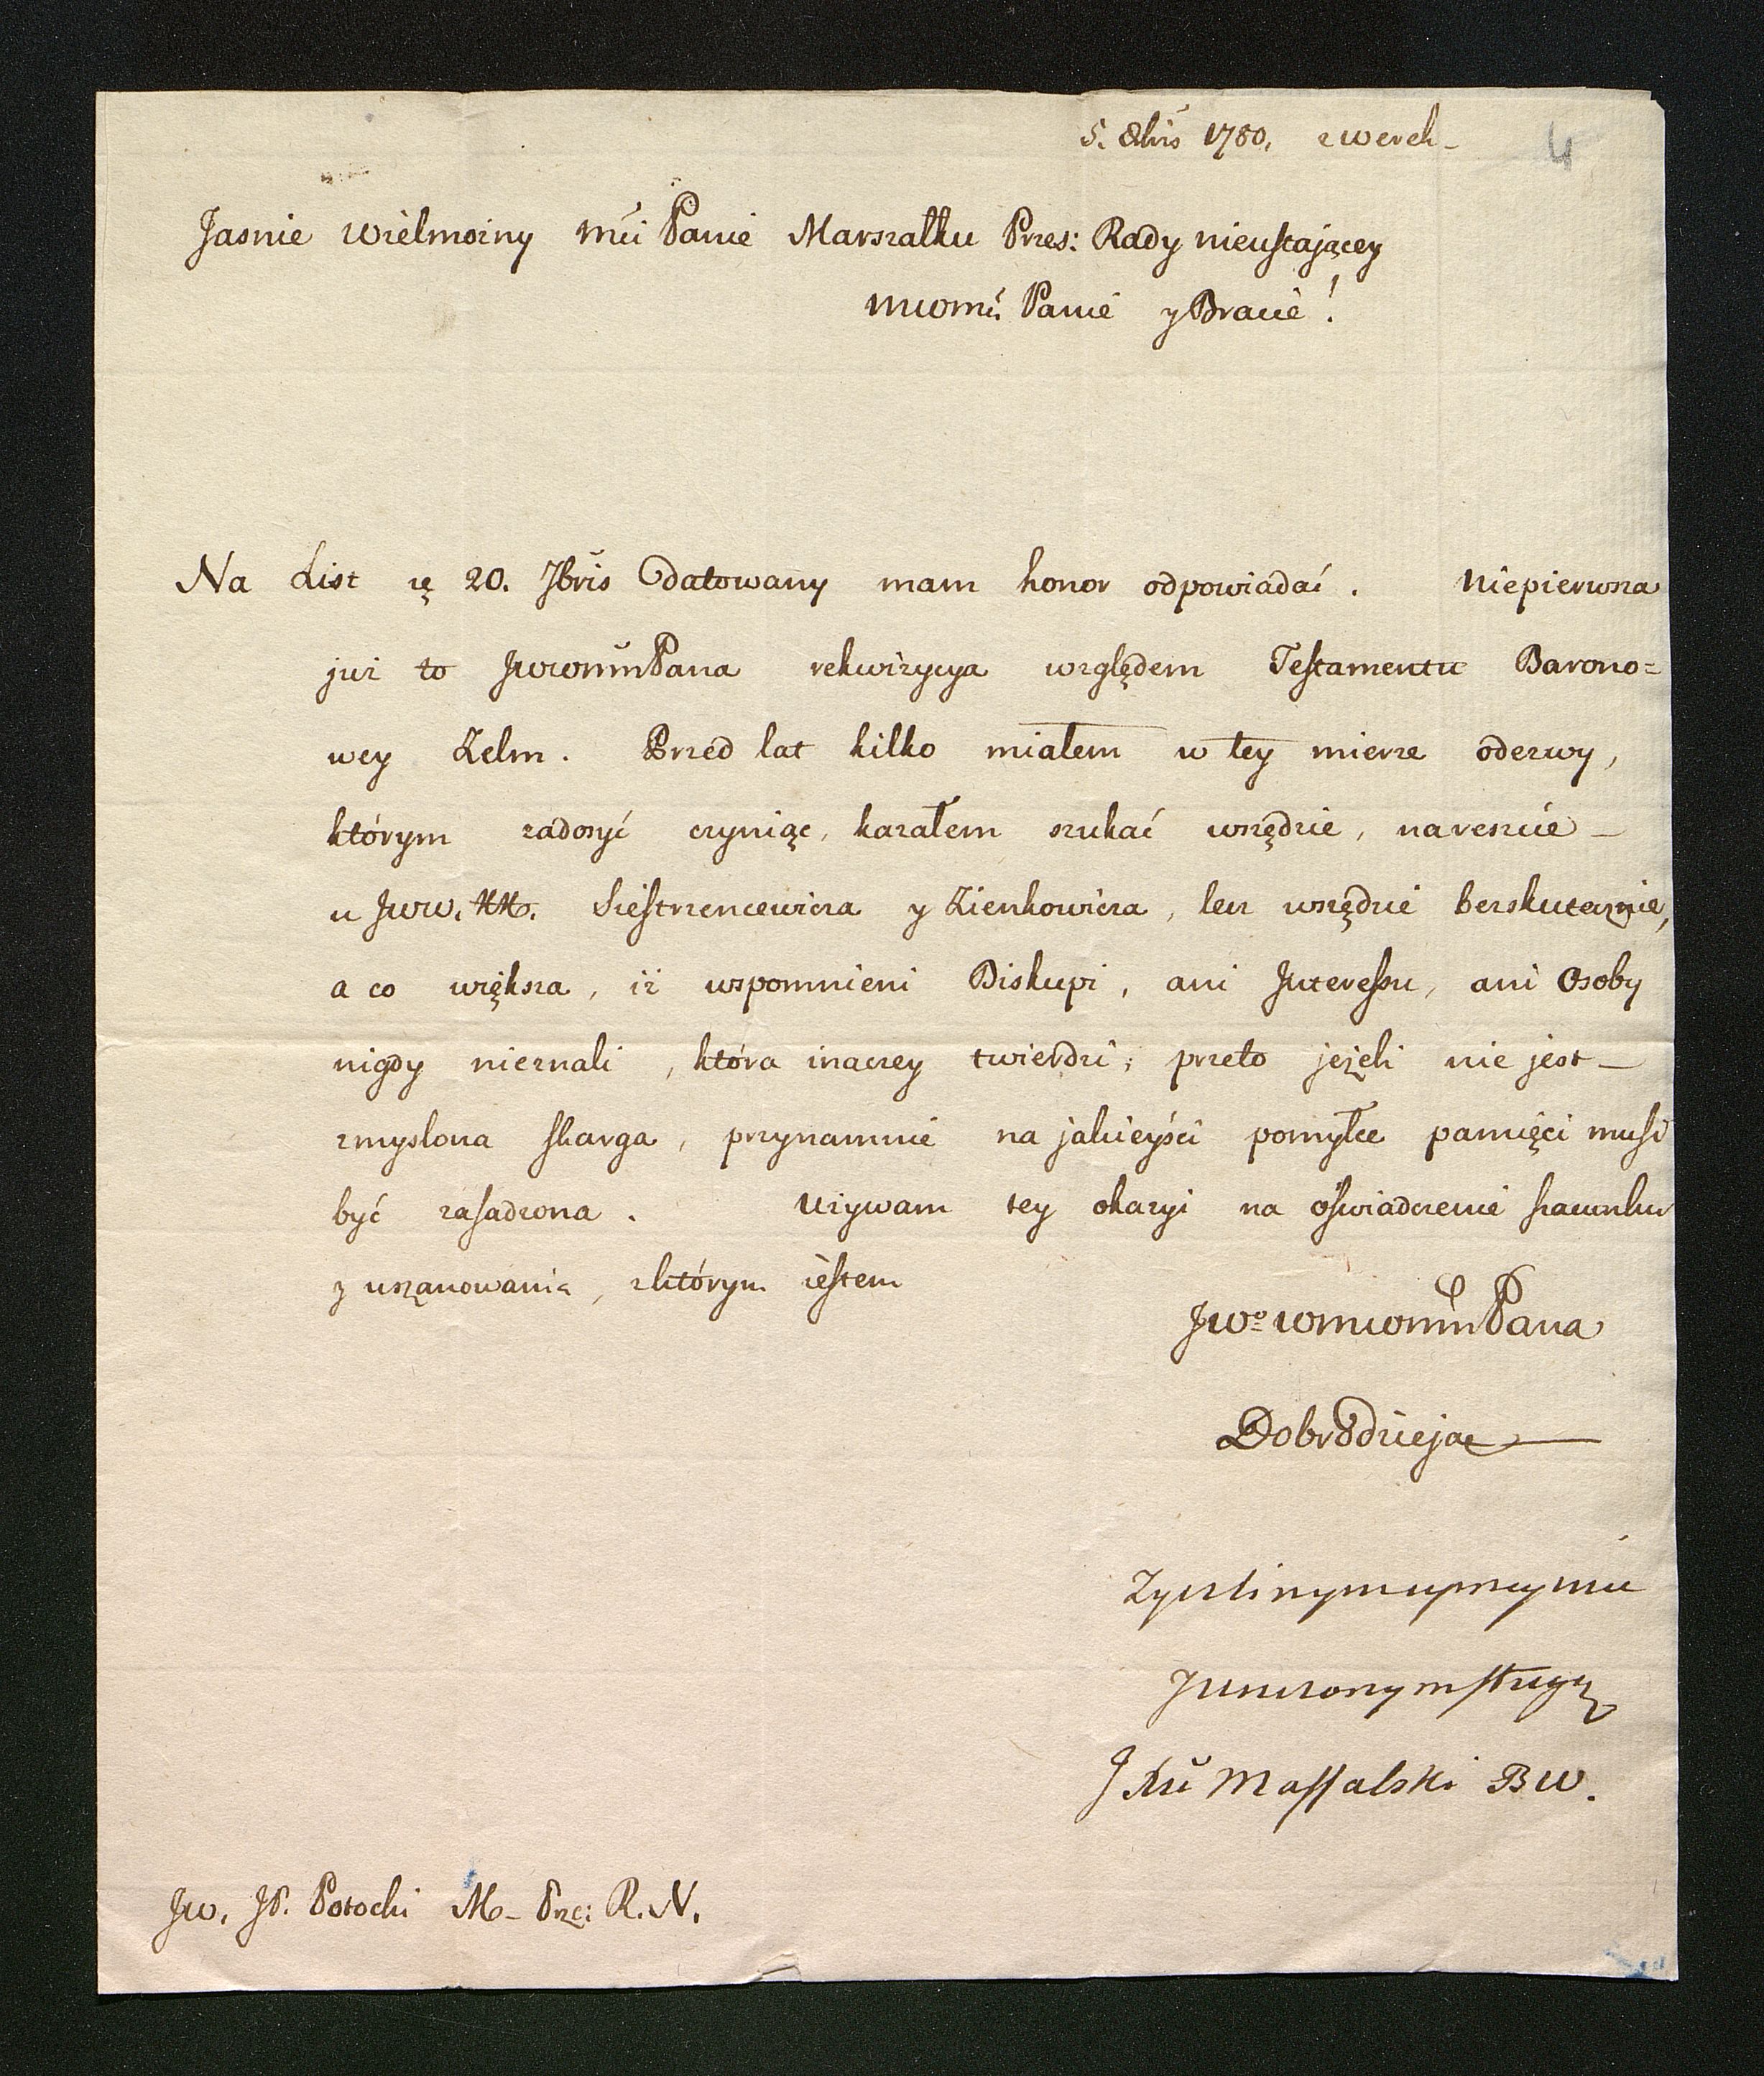 5. 8bris 1780. z Werek_ 4
Jasnie Wielmożny Mći Panie Marszałku Prez: Rady nieustaiącey
MWomći Panie y Bracie!
Na List z 20. 7bris Odatowany mam honor odpowiadać. Niepierwsza
już to JWWmMPana rekwizycya względem Testamentu Barono=
wey Zelm. Przed lat kilko miałem w tey mierze odezwy,
którym zadosyć czyniąc, kazałem szukać wszędzie, nareszcie_
u JWW. XX. Siestrzencewicza y Zienkowicza, lecz wszędzie bezskutecznie,
a co większa, iż wspomnieni Biskupi, ani Interessu, ani Osoby
nigdy nieznali, która inaczey twierdzi; przeto jeżeli nie jest_
zmyslona skarga, przynamnie na jakieyści pomyłce pamięci musi
być zasadzona. Używam tey okazyi na oświadczenie szacunku
y uszanowania, zktórym iestem
JWo WMWomMPana
Dobrodzieja
Zyczliwym uprzymie
Junizonym sługą
J Xże Massalski BW.
JW. JP. Potocki M_ Prz: R. N.